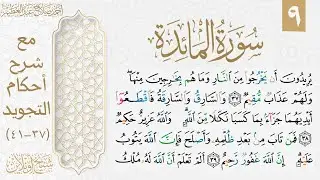 ٩
سُورَةُ الْمَائِدَةِ
مع
شرح
أحكام
التجويد
(٣٧-٤١)
يُرِيدُونَ أَن يَخْرُجُوا مِنَ النَّارِ وَمَا هُم بِخَارِجِينَ مِنْهَا
وَلَهُمْ عَذَابٌ مُّقِيمٌ ٣٧ وَالسَّارِقُ وَالسَّارِقَةُ فَاقْطَعُوا
أَيْدِيَهُمَا جَزَاءً بِمَا كَسَبَا نَكَالًا مِّنَ اللَّهِ وَاللَّهُ عَزِيزٌ حَكِيمٌ
٣٨ فَمَن تَابَ مِن بَعْدِ ظُلْمِهِ وَأَصْلَحَ فَإِنَّ اللَّهَ يَتُوبُ
عَلَيْهِ إِنَّ اللَّهَ غَفُورٌ رَّحِيمٌ ٣٩ أَلَمْ تَعْلَمْ أَنَّ اللَّهَ لَهُ مُلْكُ